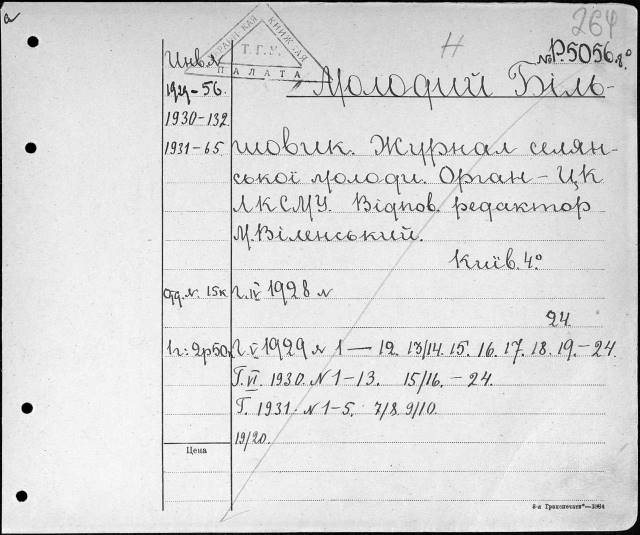 а
264
УКРАЇНСЬКА КНИЖНАЯ
Т.Г.У.
ПАЛАТА
Н
№ Р5056.8°
Инв.№
1929-56.
1930-132
1931-65
Молодий Біль-
шовик. Журнал селян-
ської молоди. Орган-ЦК
ЛКСМУ. Відпов. редактор
М.Віленський.
Київ. 4°
Отд. №. 15к Г. IV 1928 №
24
1г: 2р50к Г. V 1929 № 1 — 12. 13/14. 15. 16. 17. 18. 19.-24.
Г. VI. 1930. № 1-13. 15/16. - 24.
Г. 1931. № 1-5. 7/8. 9/10.
19/20.
Цена